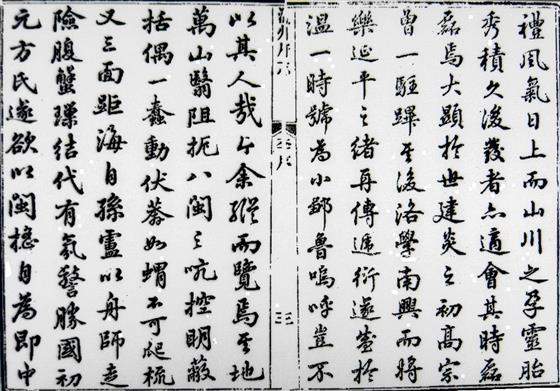 禮風氣日上而山川之孕靈胎
秀積久後發者亦適會其時磊
磊焉大顯於世建炎之初高宗
曾一駐蹕其後洛學南興而將
樂延平之緒再傳遞衍遂盛於
溫一時號為小鄒魯嗚呼豈不
三
以其人哉今余縱而覽焉其地
萬山翳阻扼八閩之吭控明蔽
括偶一蠢動伏莽如蝟不可爬梳
又三面距海自孫盧以舟師走
險腹蟹璅結代有氛警勝國初
元方氏遂欲以閩自為即中